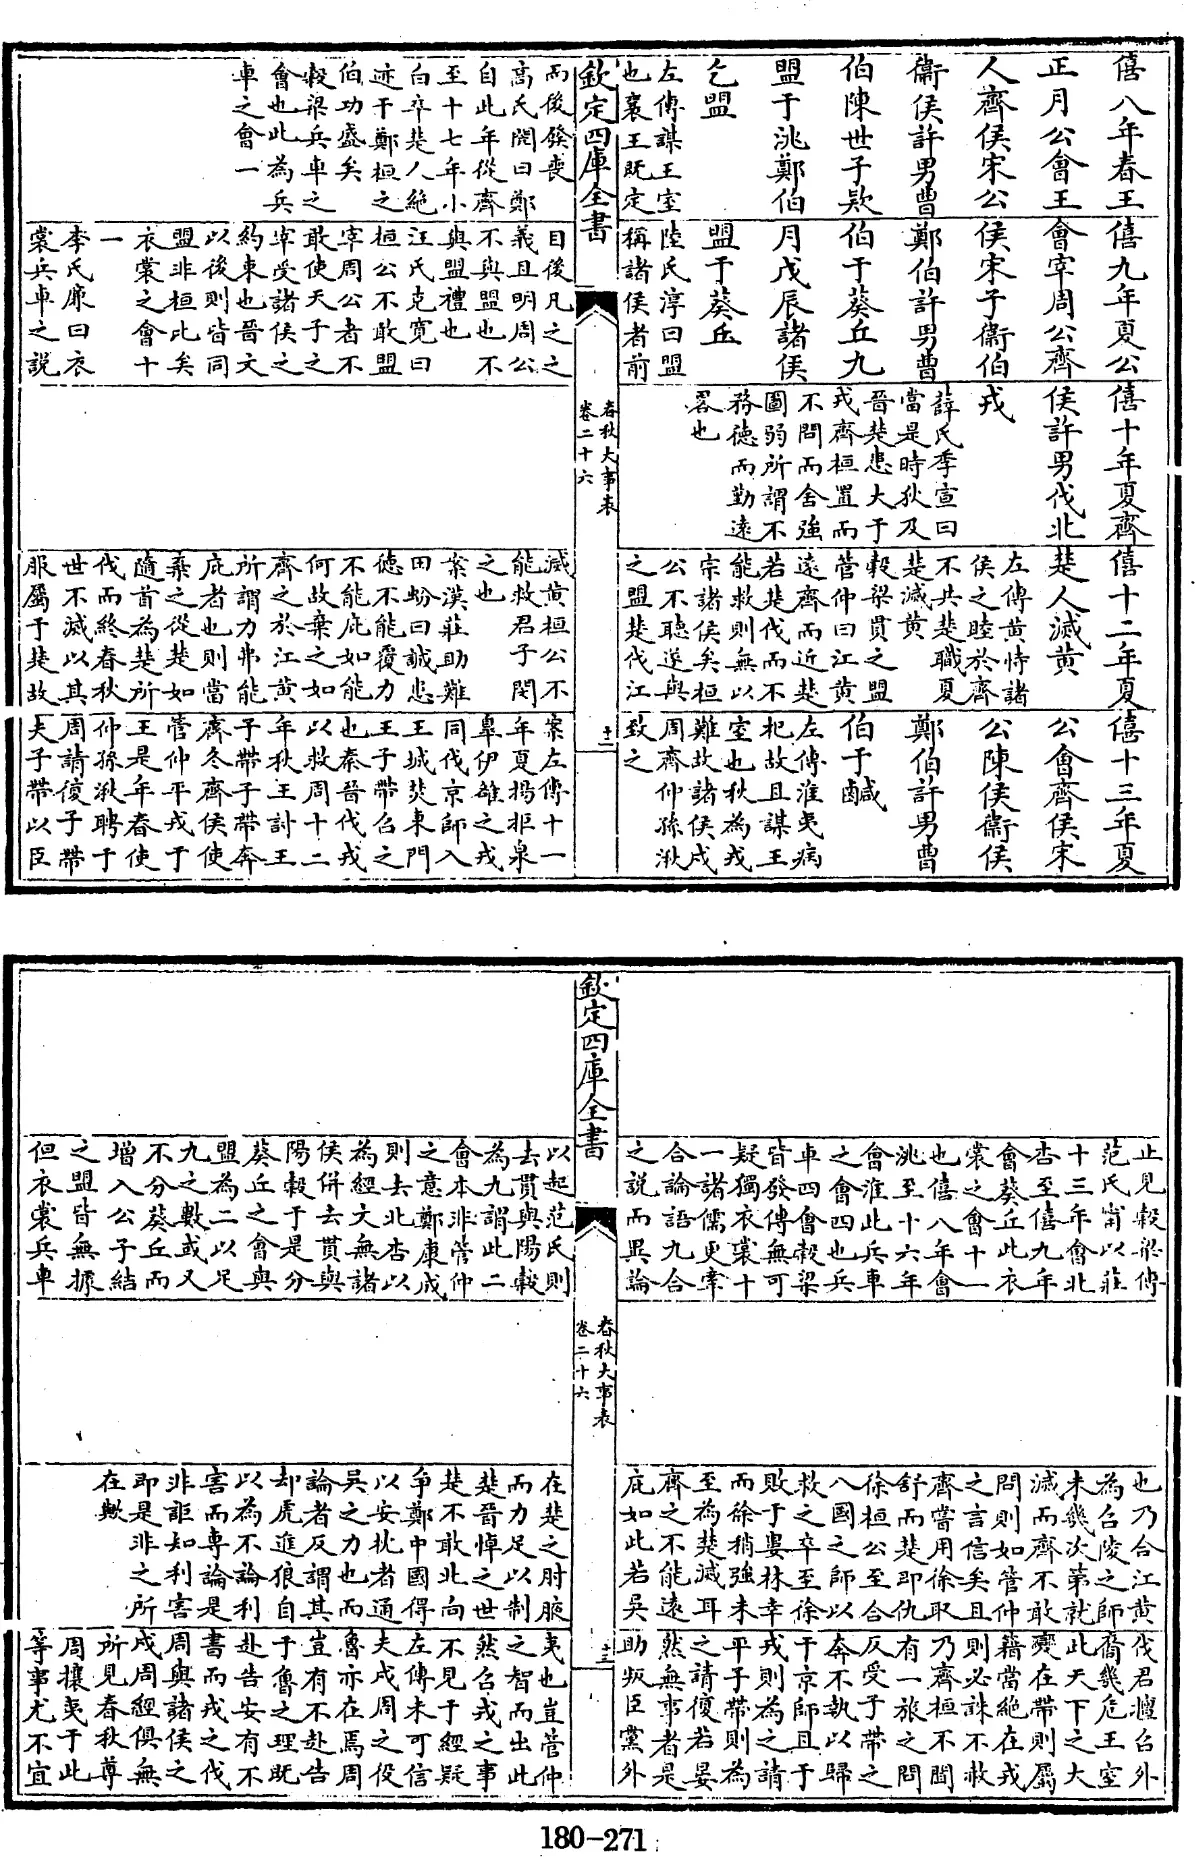 僖八年春王
正月公會王
人齊侯宋公
衞侯許男曹
伯陳世子欵
盟于洮鄭伯
乞盟
左傳謀王室
也襄王既定
僖九年夏公
會宰周公齊
侯宋子衞伯
鄭伯許男曹
伯于葵丘九
月戊辰諸侯
盟于葵丘
陸氏淳曰盟
稱諸侯者前
僖十年夏齊
侯許男伐北
戎
薛氏季宣曰
當是時狄及
晉楚患大于
戎齊桓置而
不問而舍強
圖弱所謂不
務德而勤遠
畧也
僖十二年夏
楚人滅黄
左傳黄恃諸
侯之睦於齊
不共楚職夏
楚滅黄
榖梁貫之盟
管仲曰江黄
遠齊而近楚
若楚伐而不
能救則無以
宗諸侯矣桓
公不聽遂與
之盟楚伐江
僖十三年夏
公會齊侯宋
公陳侯衞侯
鄭伯許男曹
伯于鹹
左傳淮夷病
杞故且謀王
室也秋為戎
難故諸侯戍
周齊仲孫湫
致之
欽定四庫全書
春秋大事表
卷二十六
十二
而後發喪
髙氏閌曰鄭
自此年從齊
至十七年小
白卒楚人絶
迹于鄭桓之
伯功盛矣
榖梁兵車之
會也此為兵
車之會一
目後凡之之
義且明周公
不與盟也不
與盟禮也
汪氏克寛曰
桓公不敢盟
宰周公者不
敢使天子之
宰受諸侯之
約束也晉文
以後則皆同
盟非桓此矣
衣裳之會十
一
李氏㢘曰衣
裳兵車之説
滅黄桓公不
能救君子閔
之也
案漢莊助難
田蚡曰誠患
徳不能覆力
不能庇如能
何故棄之如
齊之於江黄
所謂力弗能
庇者也則當
棄之從楚如
隨首為楚所
伐而終春秋
世不滅以其
服屬于楚故
案左傳十一
年夏揚拒泉
臯伊雒之戎
同伐京師入
王城焚東門
王子帶召之
也秦晉伐戎
以救周十二
年秋王討王
子帶子帶奔
齊冬齊侯使
管仲平戎于
王是年春使
仲孫湫聘于
周請復子帶
夫子帶以臣
止見榖梁傳
范氏甯以莊
十三年會北
杏至僖九年
會葵丘此衣
裳之會十一
也僖八年會
洮至十六年
會淮此兵車
之會四也兵
車四會榖梁
皆發傳無可
疑獨衣裳十
一諸儒更牽
合論語九合
之説而異論
也乃合江黄
為召陵之師
未幾次第就
滅而齊不敢
問則如管仲
之言信矣且
齊嘗用徐取
舒而楚即仇
徐桓公至合
八國之師以
救之卒至徐
敗于婁林幸
而徐稍強未
至為楚滅耳
齊之不能遠
庇如此若吳
伐君壇台外
裔幾危王室
此天下之大
變在帶則屬
籍當絶在戎
則必誅不赦
乃齊桓不聞
有一旅之問
反受子帶之
奔不執以歸
于京師且于
戎則為之請
平子帶則為
之請復若晏
然無事者是
助叛臣黨外
欽定四庫全書
春秋大事表
卷二十六
十三
以起范氏則
去貫與陽榖
為九謂此二
會本非管仲
之意鄭康成
則去北杏以
為經文無諸
侯併去貫與
陽榖于是分
葵丘之會與
盟為二以足
九之數或又
不分葵丘而
增入公子結
之盟皆無據
但衣裳兵車
在楚之肘腋
而力足以制
楚晉悼之世
楚不敢北向
爭鄭中國得
以安枕者通
吳之力也而
論者反謂其
却虎進狼自
以為不論利
害而専論是
非詎知利害
即是非之所
在歟
夷也豈管仲
之智而出此
然召戎之事
不見于經疑
左傳未可信
夫戍周之役
魯亦在焉周
豈有不赴告
于魯之理既
赴告安有不
書而戎之伐
周與諸侯之
戍周經俱無
所見春秋尊
周攘夷于此
等事尤不宜
180-271